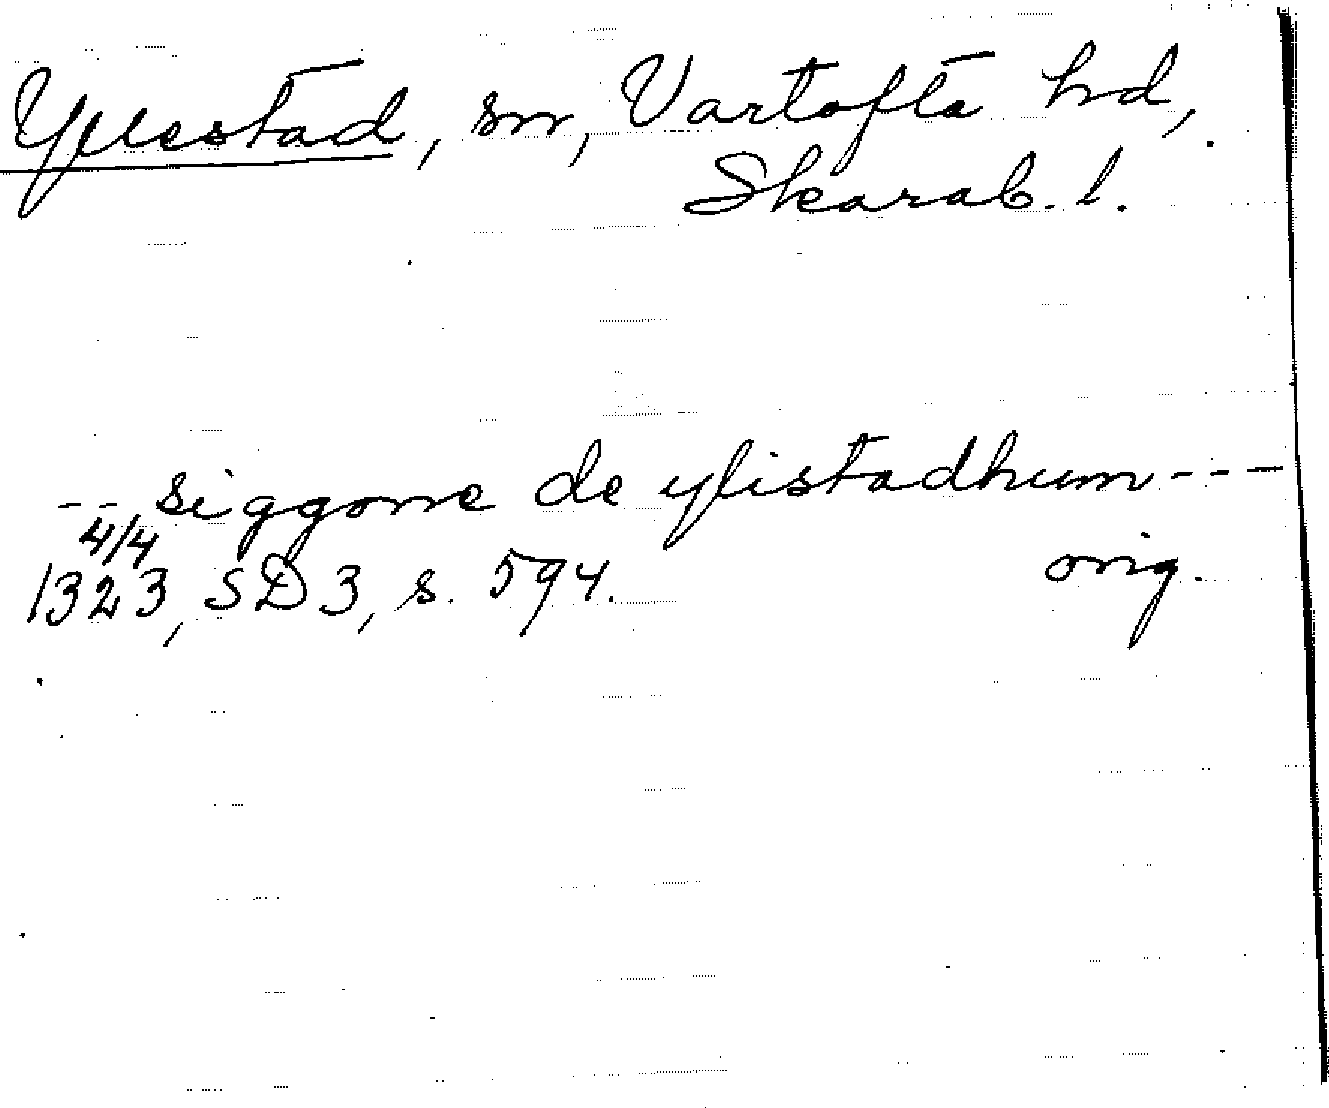 Yllestad, sn, Vartofta hd,
Skarab. l.
-- siggone de ylistadhum ---
4/4
1323, SD3, s. 594. orig.